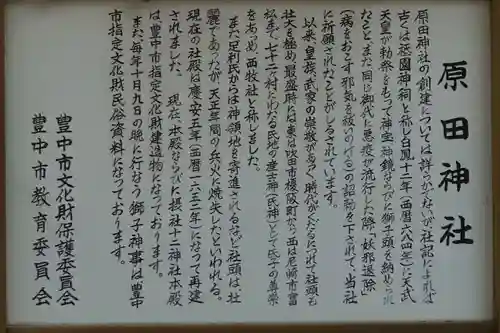 原田神社
原田神社の創建については詳らかでないが、社記によれば
古くは祇園神祠と称し白鳳十二年（西暦六八四年）に天武
天皇が勅祭をもって神宝神鏡ならびに獅子頭を納められ
たとし、また同じ御代に悪疫が流行した際「妖邪退除」
（病をおこす邪気を祓いのぞく）の詔勅を下されて、当社
に祈願されたことがしるされています。
以来、皇族、武家の崇敬があつく、時代がくだるにつれて社頭も
壮大を極め、最盛時には東は吹田市榎阪町から、西は尼崎市富
松まで、七十二ケ村にわたる民地の産土神（氏神）として氏子の尊崇
をあつめ、西牧社と称しました。
また足利氏からは神領地を寄進されるなど社頭は、壮
麗であったが、天正年間の兵火に焼失したといわれる。
現在の社殿は慶安五年（西暦一六五二年）になって再建
されました。　現在、本殿ならびに摂社十二神社本殿
は豊中市指定文化財建造物になっております。
また、毎年十月九日の晩に行なう獅子神事は豊中
市指定文化財民俗資料になっております。
豊中市文化財保護委員会
豊中市教育委員会